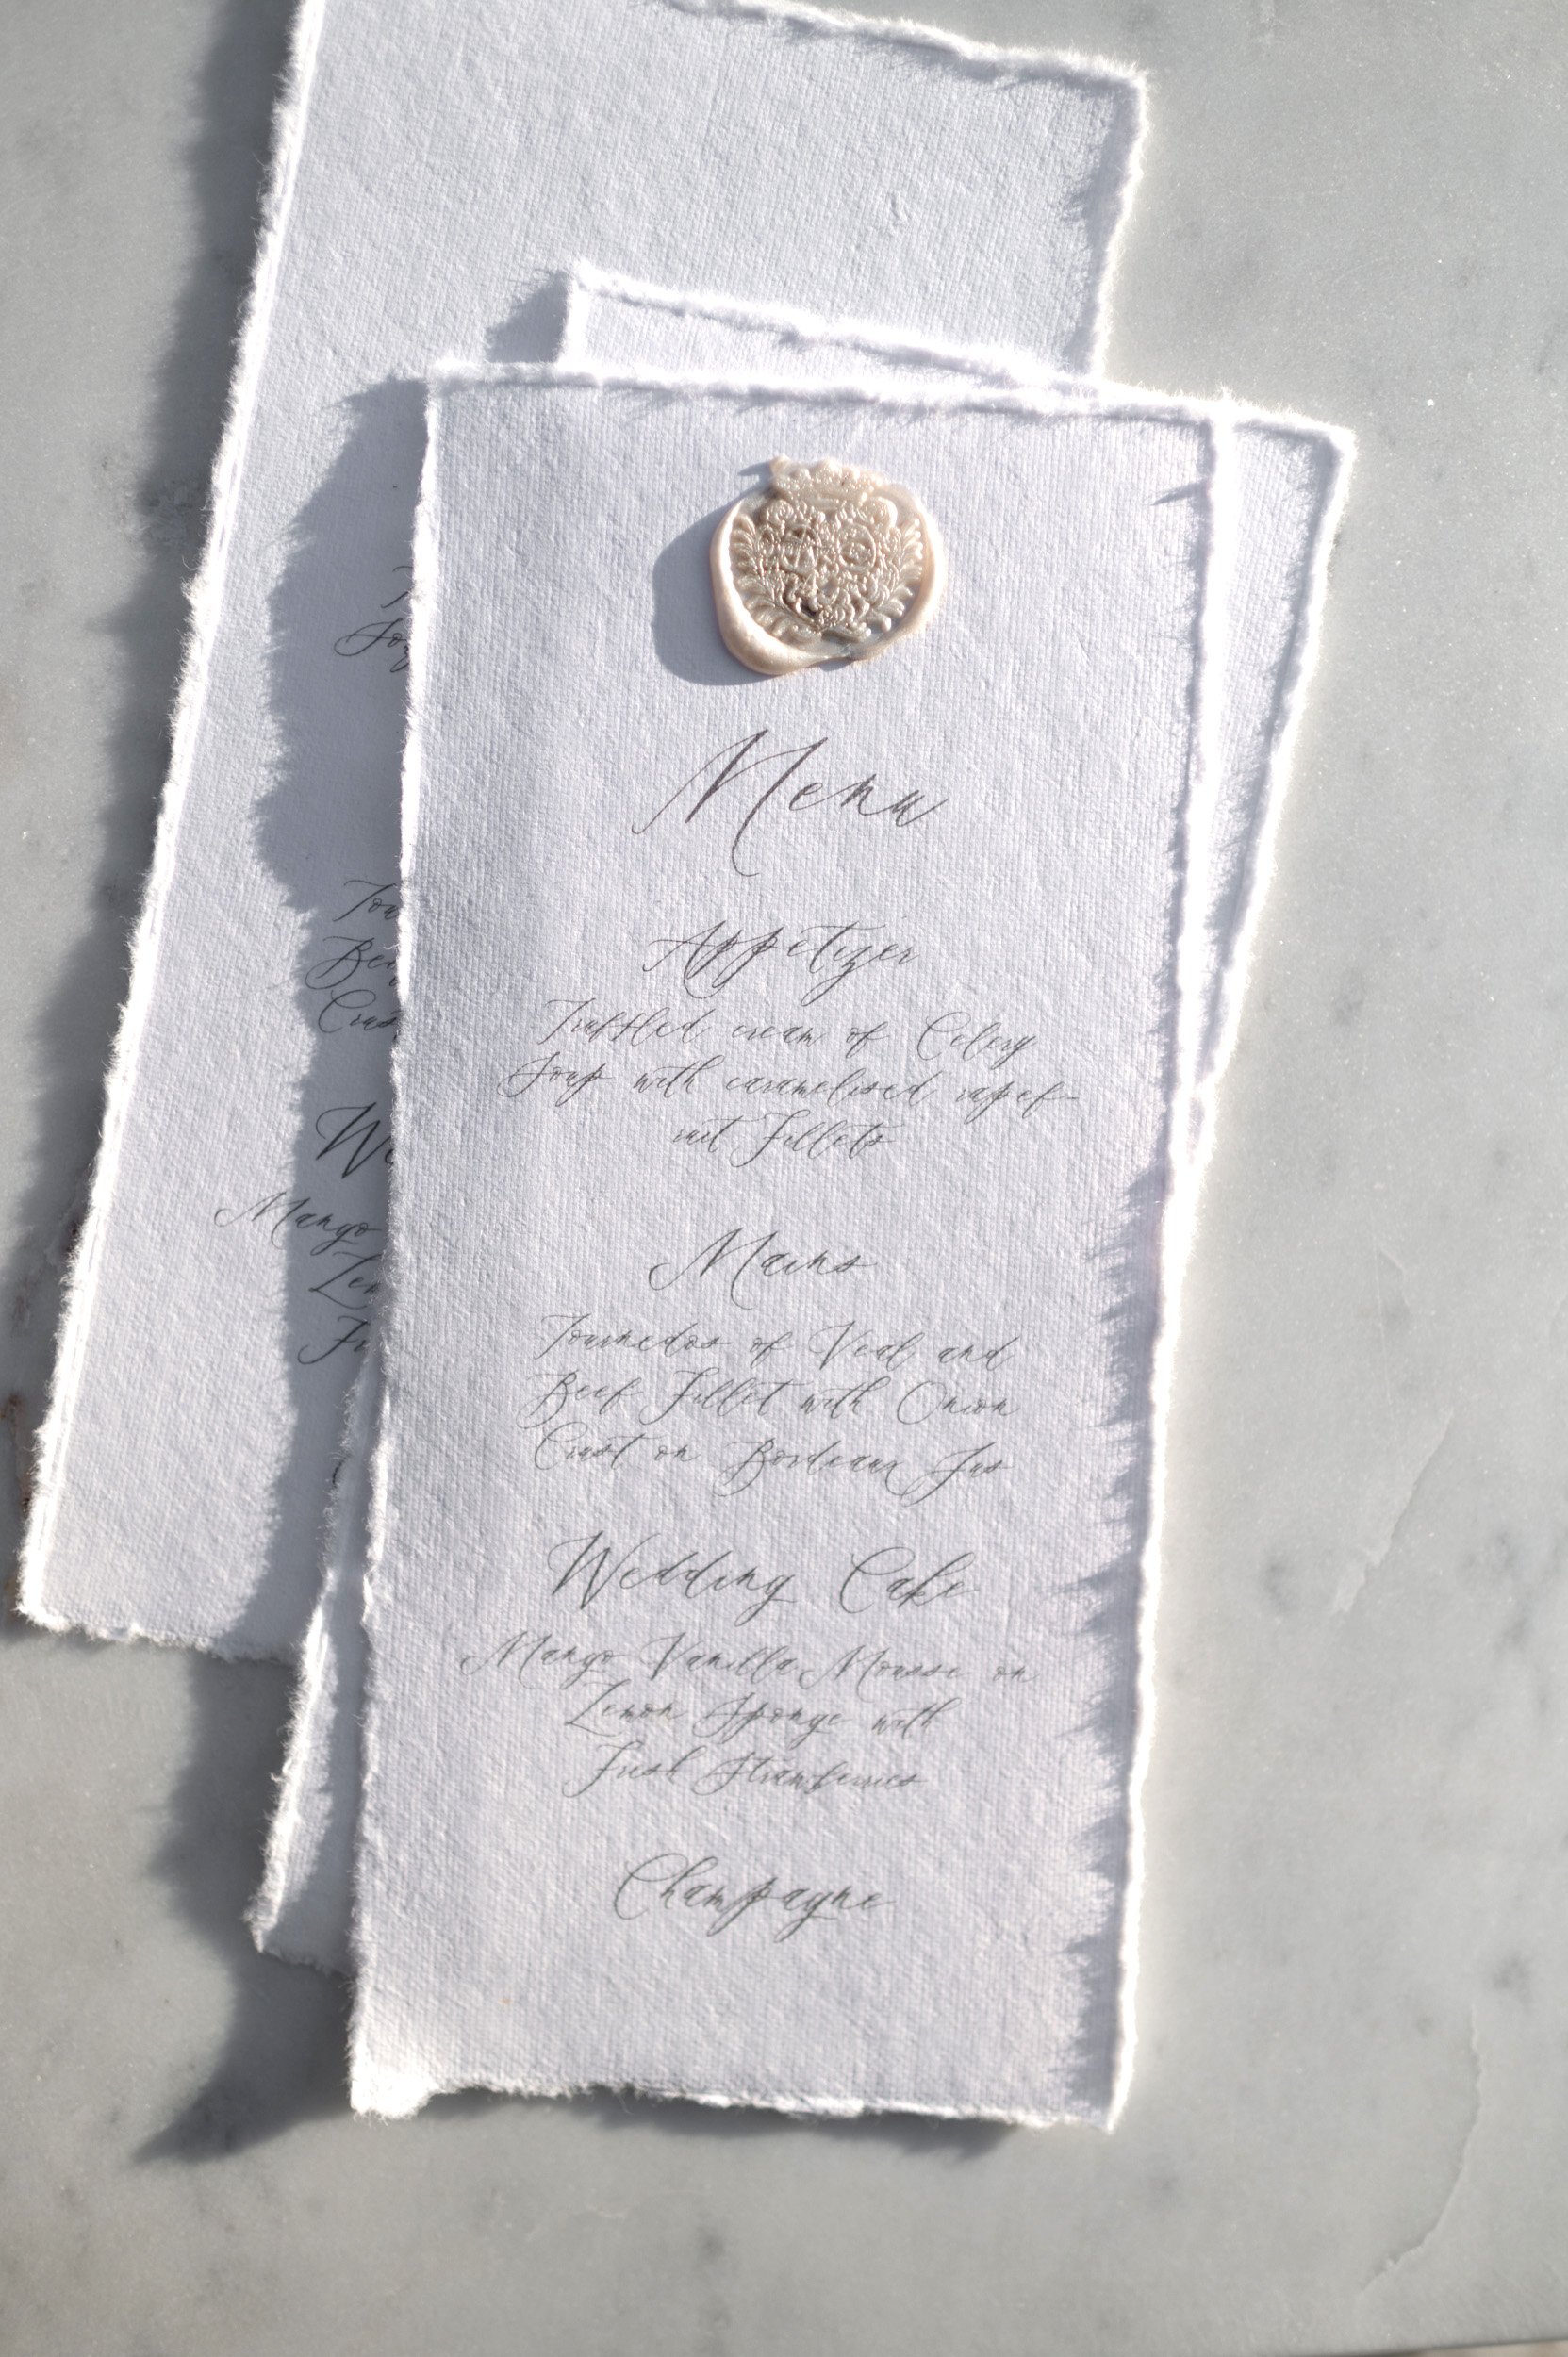 Menu
Appetizer
Truffled cream of Celery
Soup with caramelised rapef-
ruit Fillets
Mains
Tournedos of Veal and
Beef Fillet with Onion
Crust on Bordeaux Jus
Wedding Cake
Mango Vanilla Mousse on
Lemon Sponge with
Fresh Strawberries
Champagne
Mango